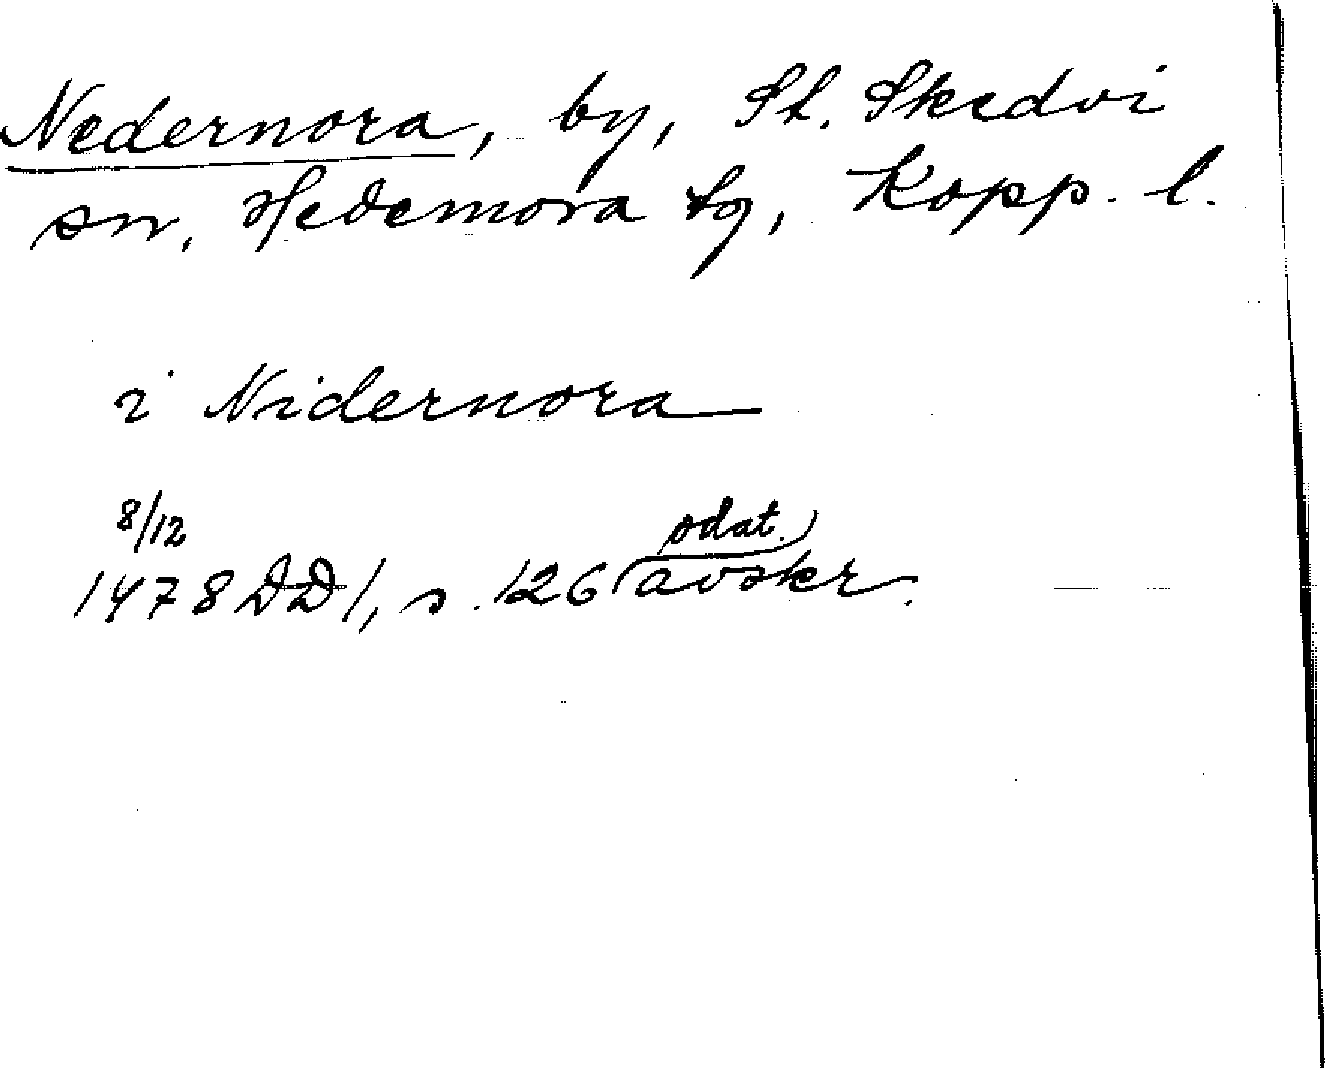 Nedernora, by, St. Skedvi
sn, Hedemora tg, Kopp. l.
i Nidernora
8/12
1478 DD 1, s. 126 (odat.)
avskr.